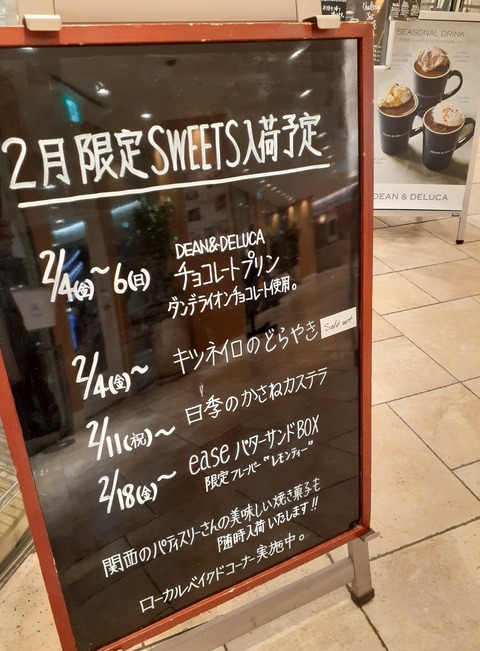 2月限定SWEETS入荷予定
2/4(金)～6(日)
DEAN&DELUCA
チョコレートプリン
ダンデライオンチョコレート使用。
2/4(金)～
キツネイロのどらやき
Sold out
2/11(祝)～
日季のかさねカステラ
2/18(金)～
ease バターサンドBOX
限定フレーバー"レモンティー"
関西のパティスリーさんの美味しい焼き菓子も
随時入荷いたします!!
ローカルベイクドコーナー実施中。
SEASONAL DRINK
DEAN & DELUCA